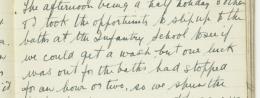 The afternoon being a half holiday
I took the opportunity to slip up to the
baths at the Infantry School to see if
we could get a wash but our luck
was out for the baths had stopped
for an hour or two, so we the